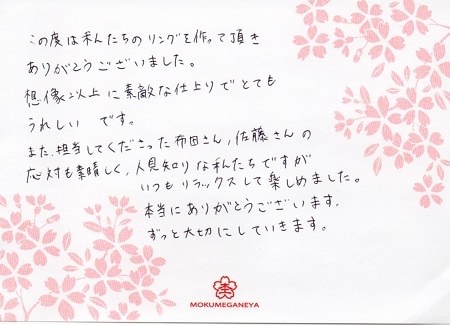 この度は私たちのリングを作って頂き
ありがとうございました。
想像以上に素敵な仕上りでとても
うれしいです。
また、担当してくださった布田さん,佐藤さんの
応対も素晴しく,人見知りな私たちですが
いつもリラックスして楽しめました。
本当にありがとうございます.
ずっと大切にしていきます。
MOKUMEGANEYA